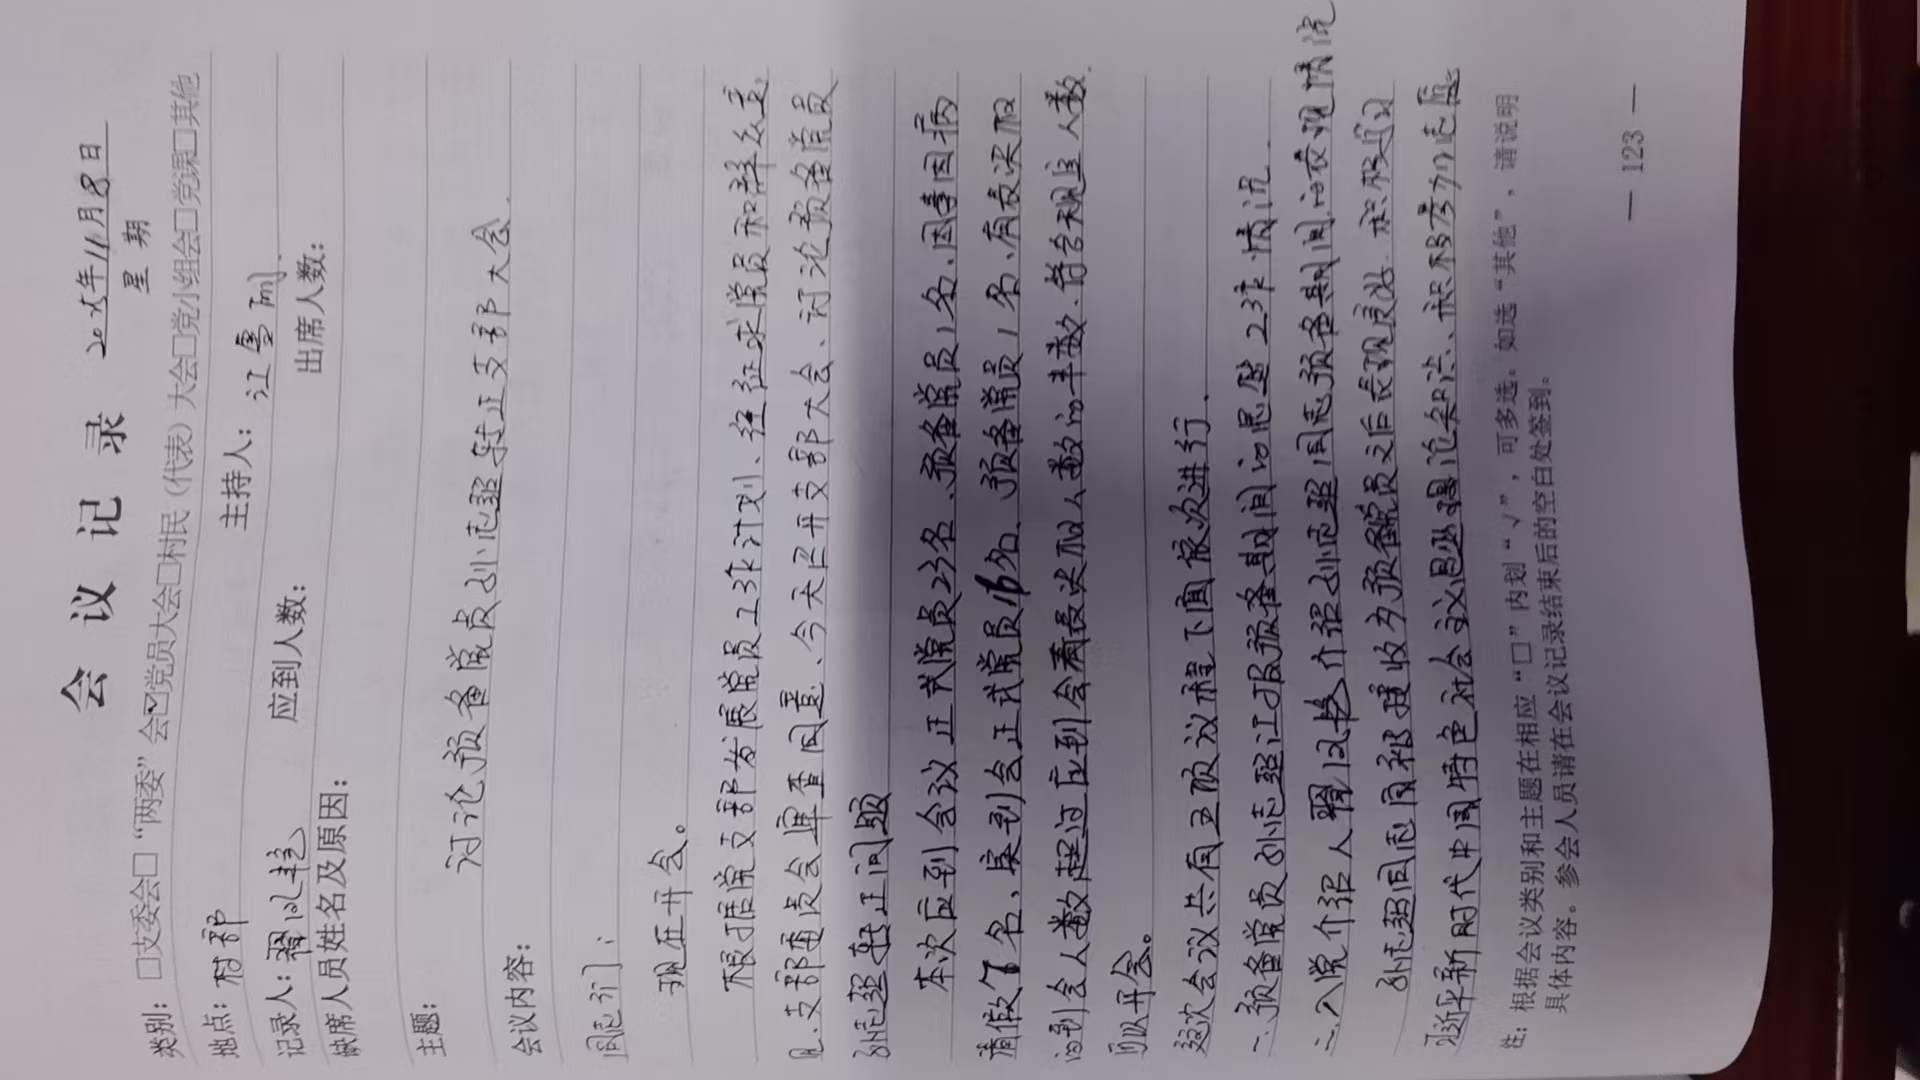 会议记录
2025年11月8日
星期
类别：□支委会□“两委”会☑党员大会□村民（代表）大会□党小组会□党课□其他
地点：村部 主持人：江雪
记录人：翟以艳 应到人数： 出席人数：
缺席人员姓名及原因：
主题：
讨论预备党员孙志超转正支部大会.
会议内容：
同志们：
现在开会。
根据党支部发展党员工作计划、经征求党员和群众意
见、支部委员会审查同意、今天召开支部大会、讨论预备党员
孙志超转正问题
本次应到会议正式党员23名、预备党员1名、因事因病
请假7名、实到会正式党员16名、预备党员1名、有表决权
的到会人数超过应到会有表决权人数的半数.符合规定人数.
可以开会。
这次会议共有五项议程下面依次进行.
一.预备党员孙志超汇报预备期间的思想工作情况.
二.入党介绍人翟以艳介绍孙志超同志预备期间的表现情况
孙志超同志自被接收为预备党员之后表现良好.积极学习
习近平新时代中国特色社会主义思想理论知识、积极参加志愿
注：根据会议类别和主题在相应“□”内划“√”，可多选。如选“其他”，请说明
具体内容。参会人员请在会议记录结束后的空白处签到。
— 123 —